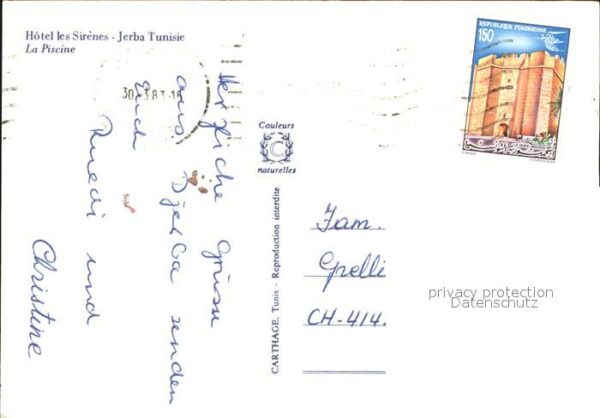 Hôtel les Sirènes - Jerba Tunisie
La Piscine
30. 3.83-15
REPUBLIQUE TUNISIENNE
150
Herzliche Grüsse
aus Djerba senden
Euch
Ruedi und
Christine
Couleurs
C
naturelles
CARTHAGE, Tunis - Reproduction interdite
Fam.
Gpelli
CH-414.
privacy protection
Datenschutz